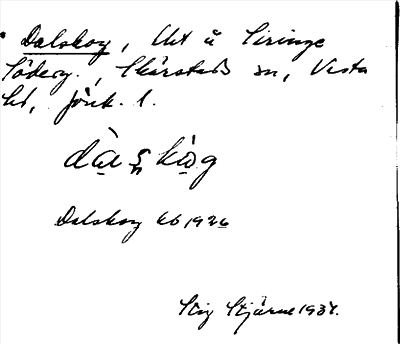 Dalskog, Uht å Siringe
Söderg., Skärstads sn, Vista
hd, Jönk. l.
Dalskog kb 1926
Stig Stjärne 1937.